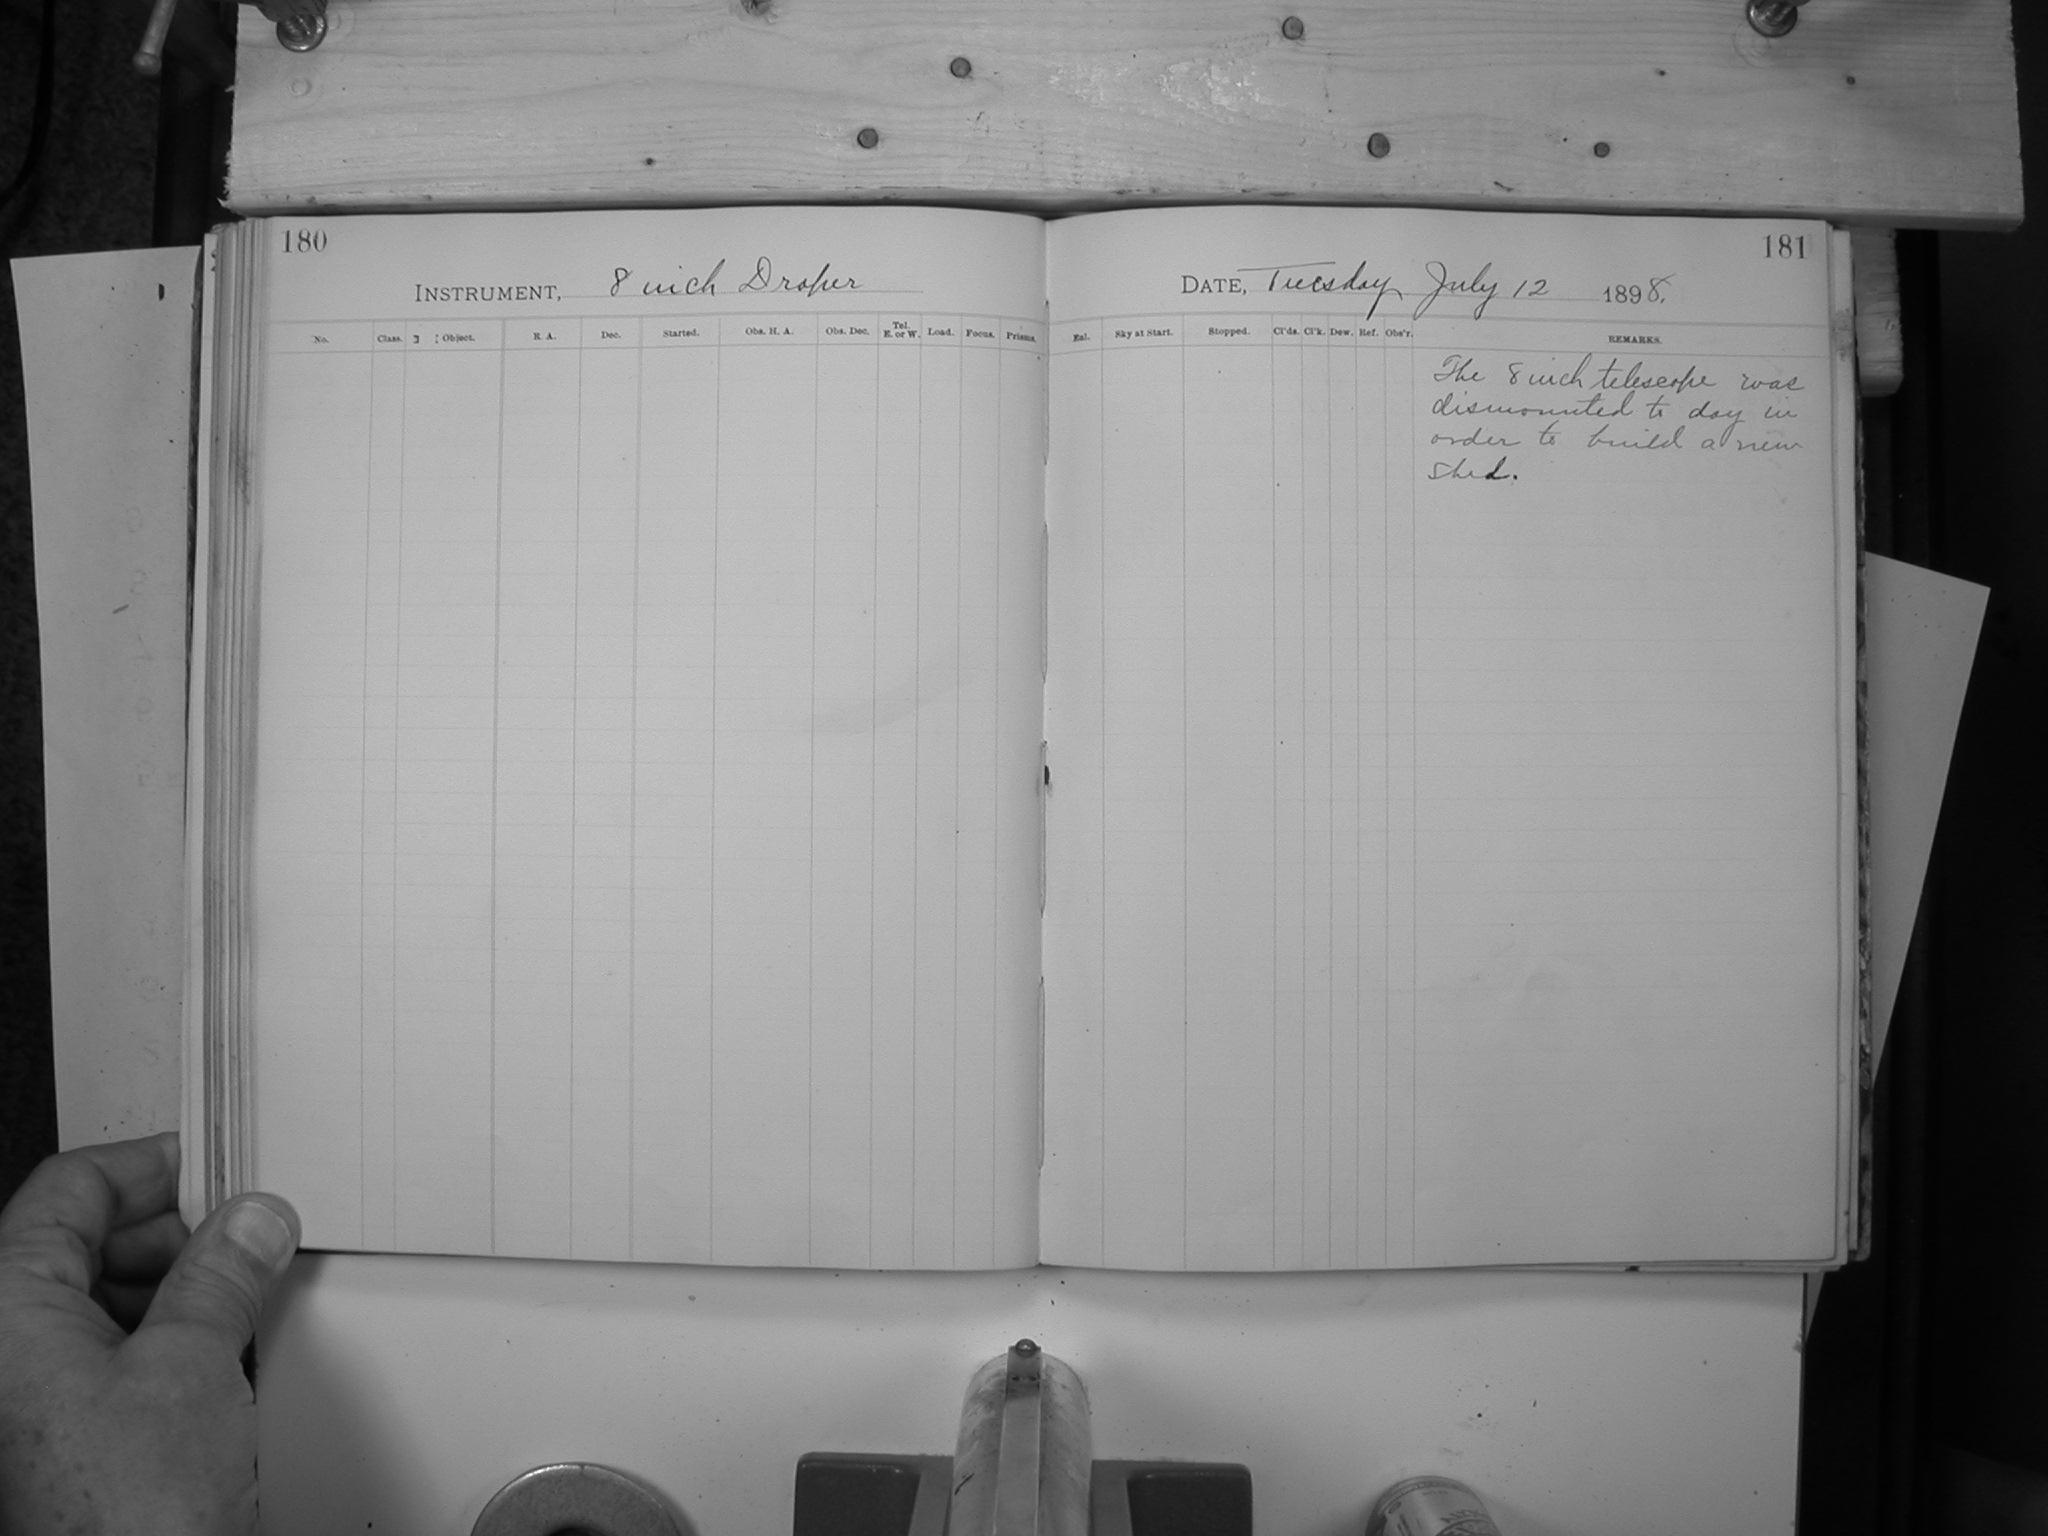 180
INSTRUMENT, 8 inch Draper
No. Class. Object. R. A. Dec. Started. Obs. H. A. Obs. Dec. Tel. E. or W. Load. Focus. Prisms.
181
DATE, Tuesday July 12 1898.
Eal. Sky at Start. Stopped. Cl'ds. Cl'k. Dew. Ref. Obs'r. REMARKS.
The 8 inch telescope was
dismounted to day in
order to build a new
shed.